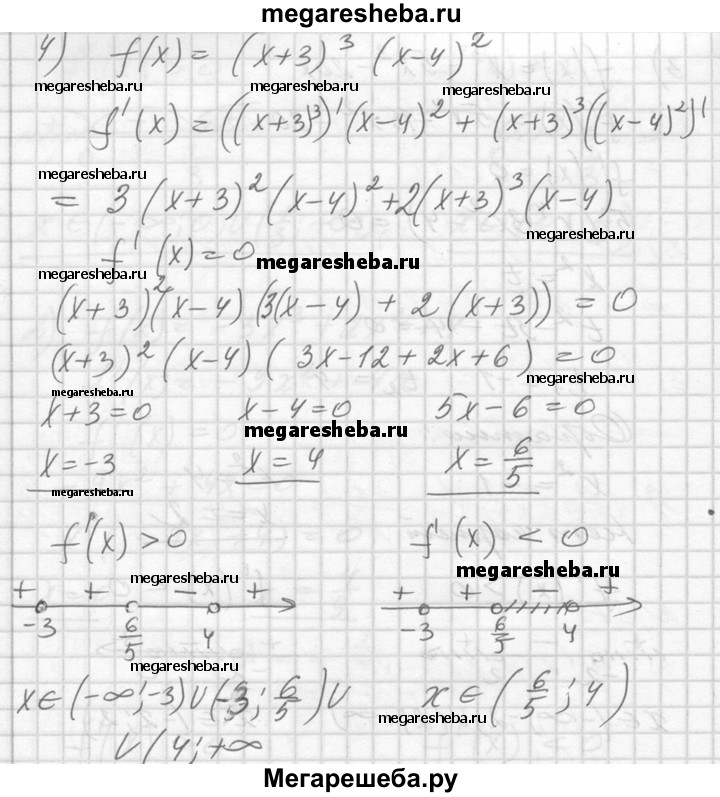 megaresheba.ru
4) f(x) = (x+3)³ (x-4)²
megaresheba.ru megaresheba.ru megaresheba.ru
f'(x) = ((x+3)³)' (x-4)² + (x+3)³((x-4)²)'
megaresheba.ru
= 3(x+3)²(x-4)²+2(x+3)³(x-4)
megaresheba.ru
f'(x)=0
megaresheba.ru megaresheba.ru
(x+3)²(x-4)(3(x-4) + 2(x+3)) = 0
(x+3)²(x-4)(3x-12+2x+6) = 0
megaresheba.ru megaresheba.ru
x+3=0 x-4=0 5x-6=0
megaresheba.ru
x=-3 x=4 x=6/5
megaresheba.ru
f'(x)>0 f'(x) < 0
megaresheba.ru megaresheba.ru
+ + - + + + - +
-3 6/5 4 -3 6/5 4
megaresheba.ru
x∈(-∞;-3)∪(-3; 6/5)∪ x∈(6/5; 4)
megaresheba.ru
∪(4;+∞
Мегарешеба.ру